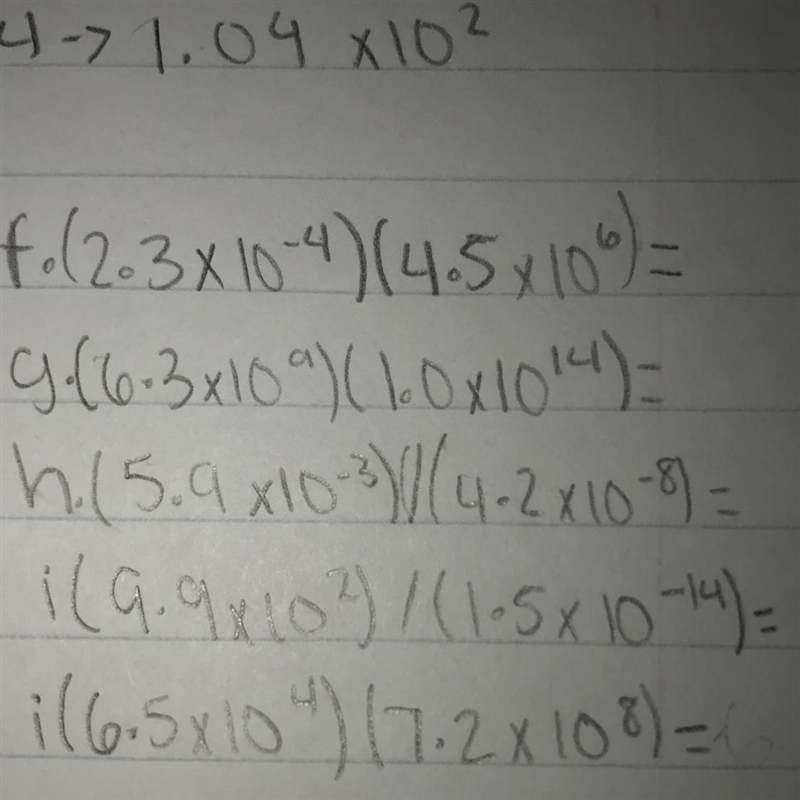 4 -> 1.04 x10²
f. (2.3 x 10⁻⁴)(4.5 x 10⁶) =
g. (6.3 x 10⁹)(1.0 x 10¹⁴) =
h. (5.9 x 10⁻³)/(4.2 x 10⁻⁸) =
i (9.9 x 10²) / (1.5 x 10⁻¹⁴) =
i (6.5 x 10⁴) (7.2 x 10⁸) =